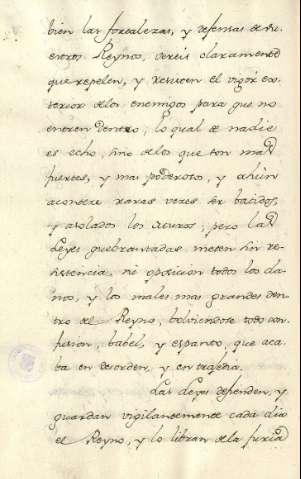 bien las fortalezas, y defensas de vu
estros Reynos, vereis claramente
que repelen, y el vigor ex
terior de los enemigos para que no
entren dentro, lo qual de nadie
es echo, sino de los que son mas
fuertes, y mas poderosos, y ahun
acontece raras veses ser batidos,
y asolados los muros; pero las
Leyes quebrantadas meten sin re
sistencia, ni oposicion todos los da
nos, y los males mas grandes den
tro del Reyno, bolviendose todo con
fusion, babel, y espanto, que aca
ba en desorden, y en trajedia.
Las Leyes defienden, y
guardan vigilantemente cada dia
el Reyno, y lo libran de la furia